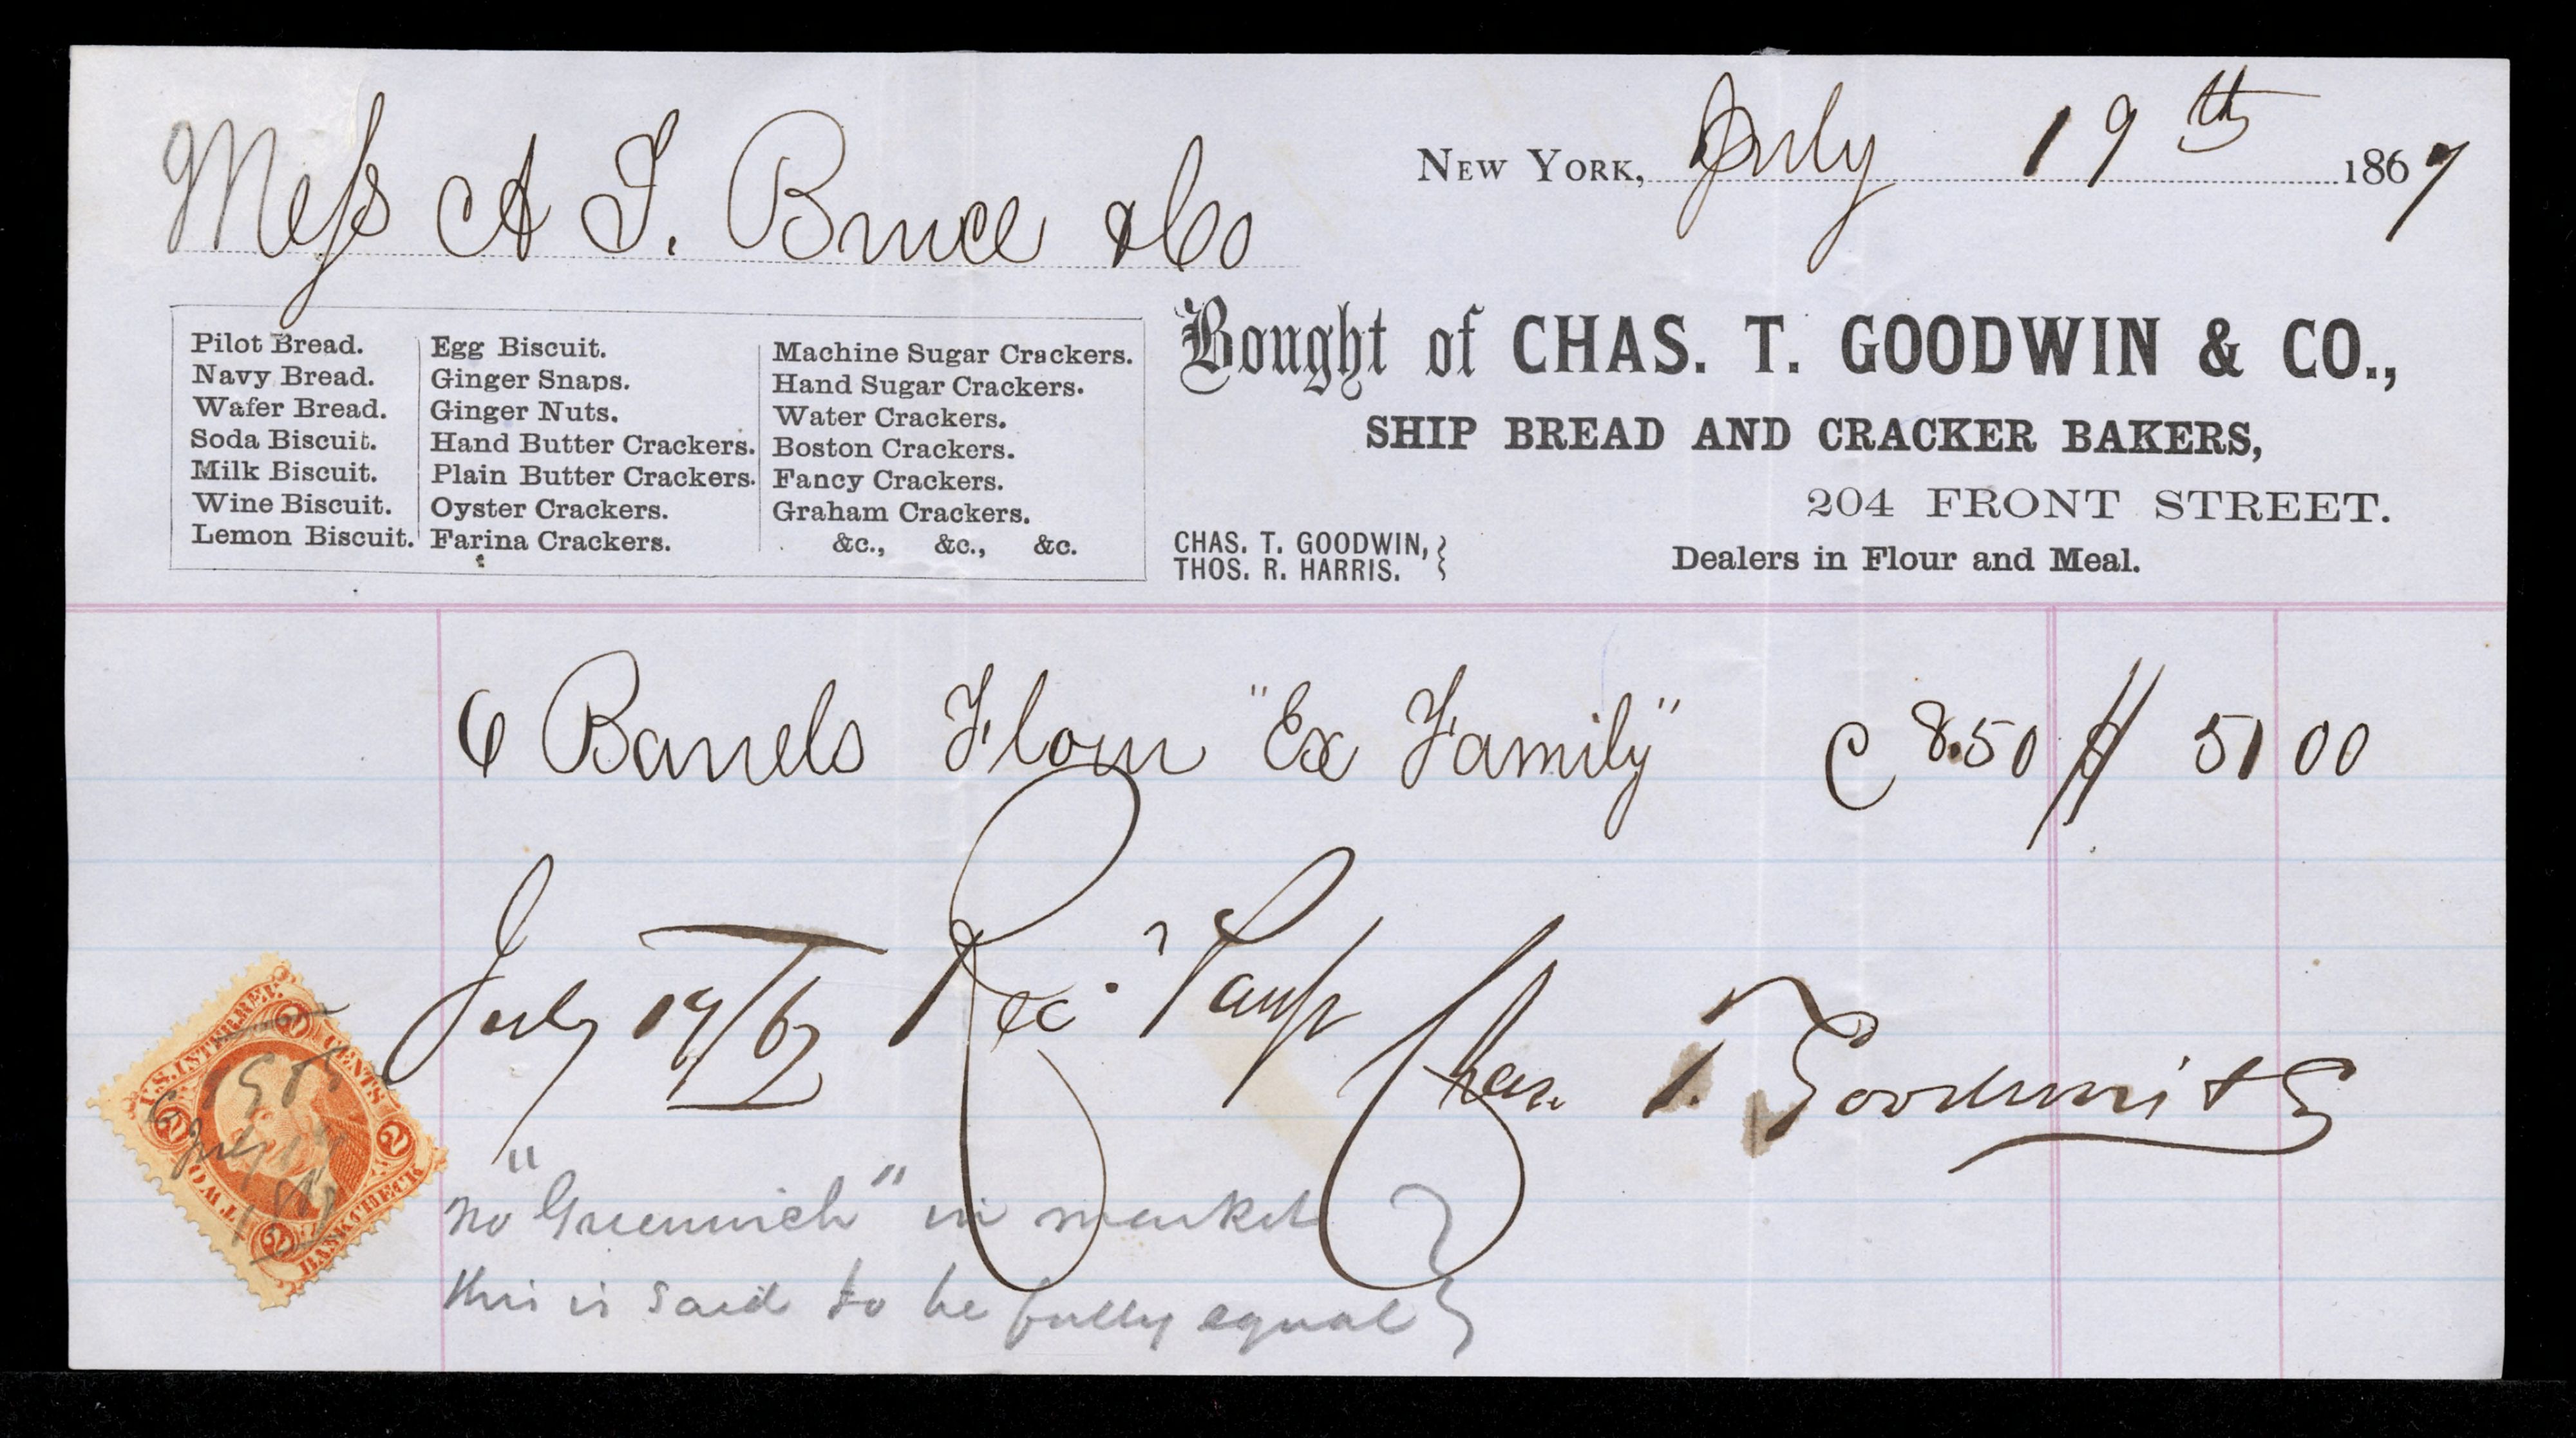 New York, July 19th 1867
Mess A I. Bruce & Co
Pilot Bread.
Navy Bread.
Wafer Bread.
Soda Biscuit.
Milk Biscuit.
Wine Biscuit.
Lemon Biscuit.
Egg Biscuit.
Ginger Snaps.
Ginger Nuts.
Hand Butter Crackers.
Plain Butter Crackers.
Oyster Crackers.
Farina Crackers.
Machine Sugar Crackers.
Hand Sugar Crackers.
Water Crackers.
Boston Crackers.
Fancy Crackers.
Graham Crackers.
&c., &c., &c.
Bought of CHAS. T. GOODWIN & CO.,
SHIP BREAD AND CRACKER BAKERS,
204 FRONT STREET.
CHAS. T. GOODWIN,
THOS. R. HARRIS.
Dealers in Flour and Meal.
6 Barrels Flour "Ex Family" @ 8.50 $ 51 00
July 19/67 Rec'd Payt Chas. T. Goodwin & Co
no "Greenwich" in market
this is said to be fully equal
U.S. INTER. REV.
2 CENTS 2
TWO 2 BANK CHECK 2
July 19